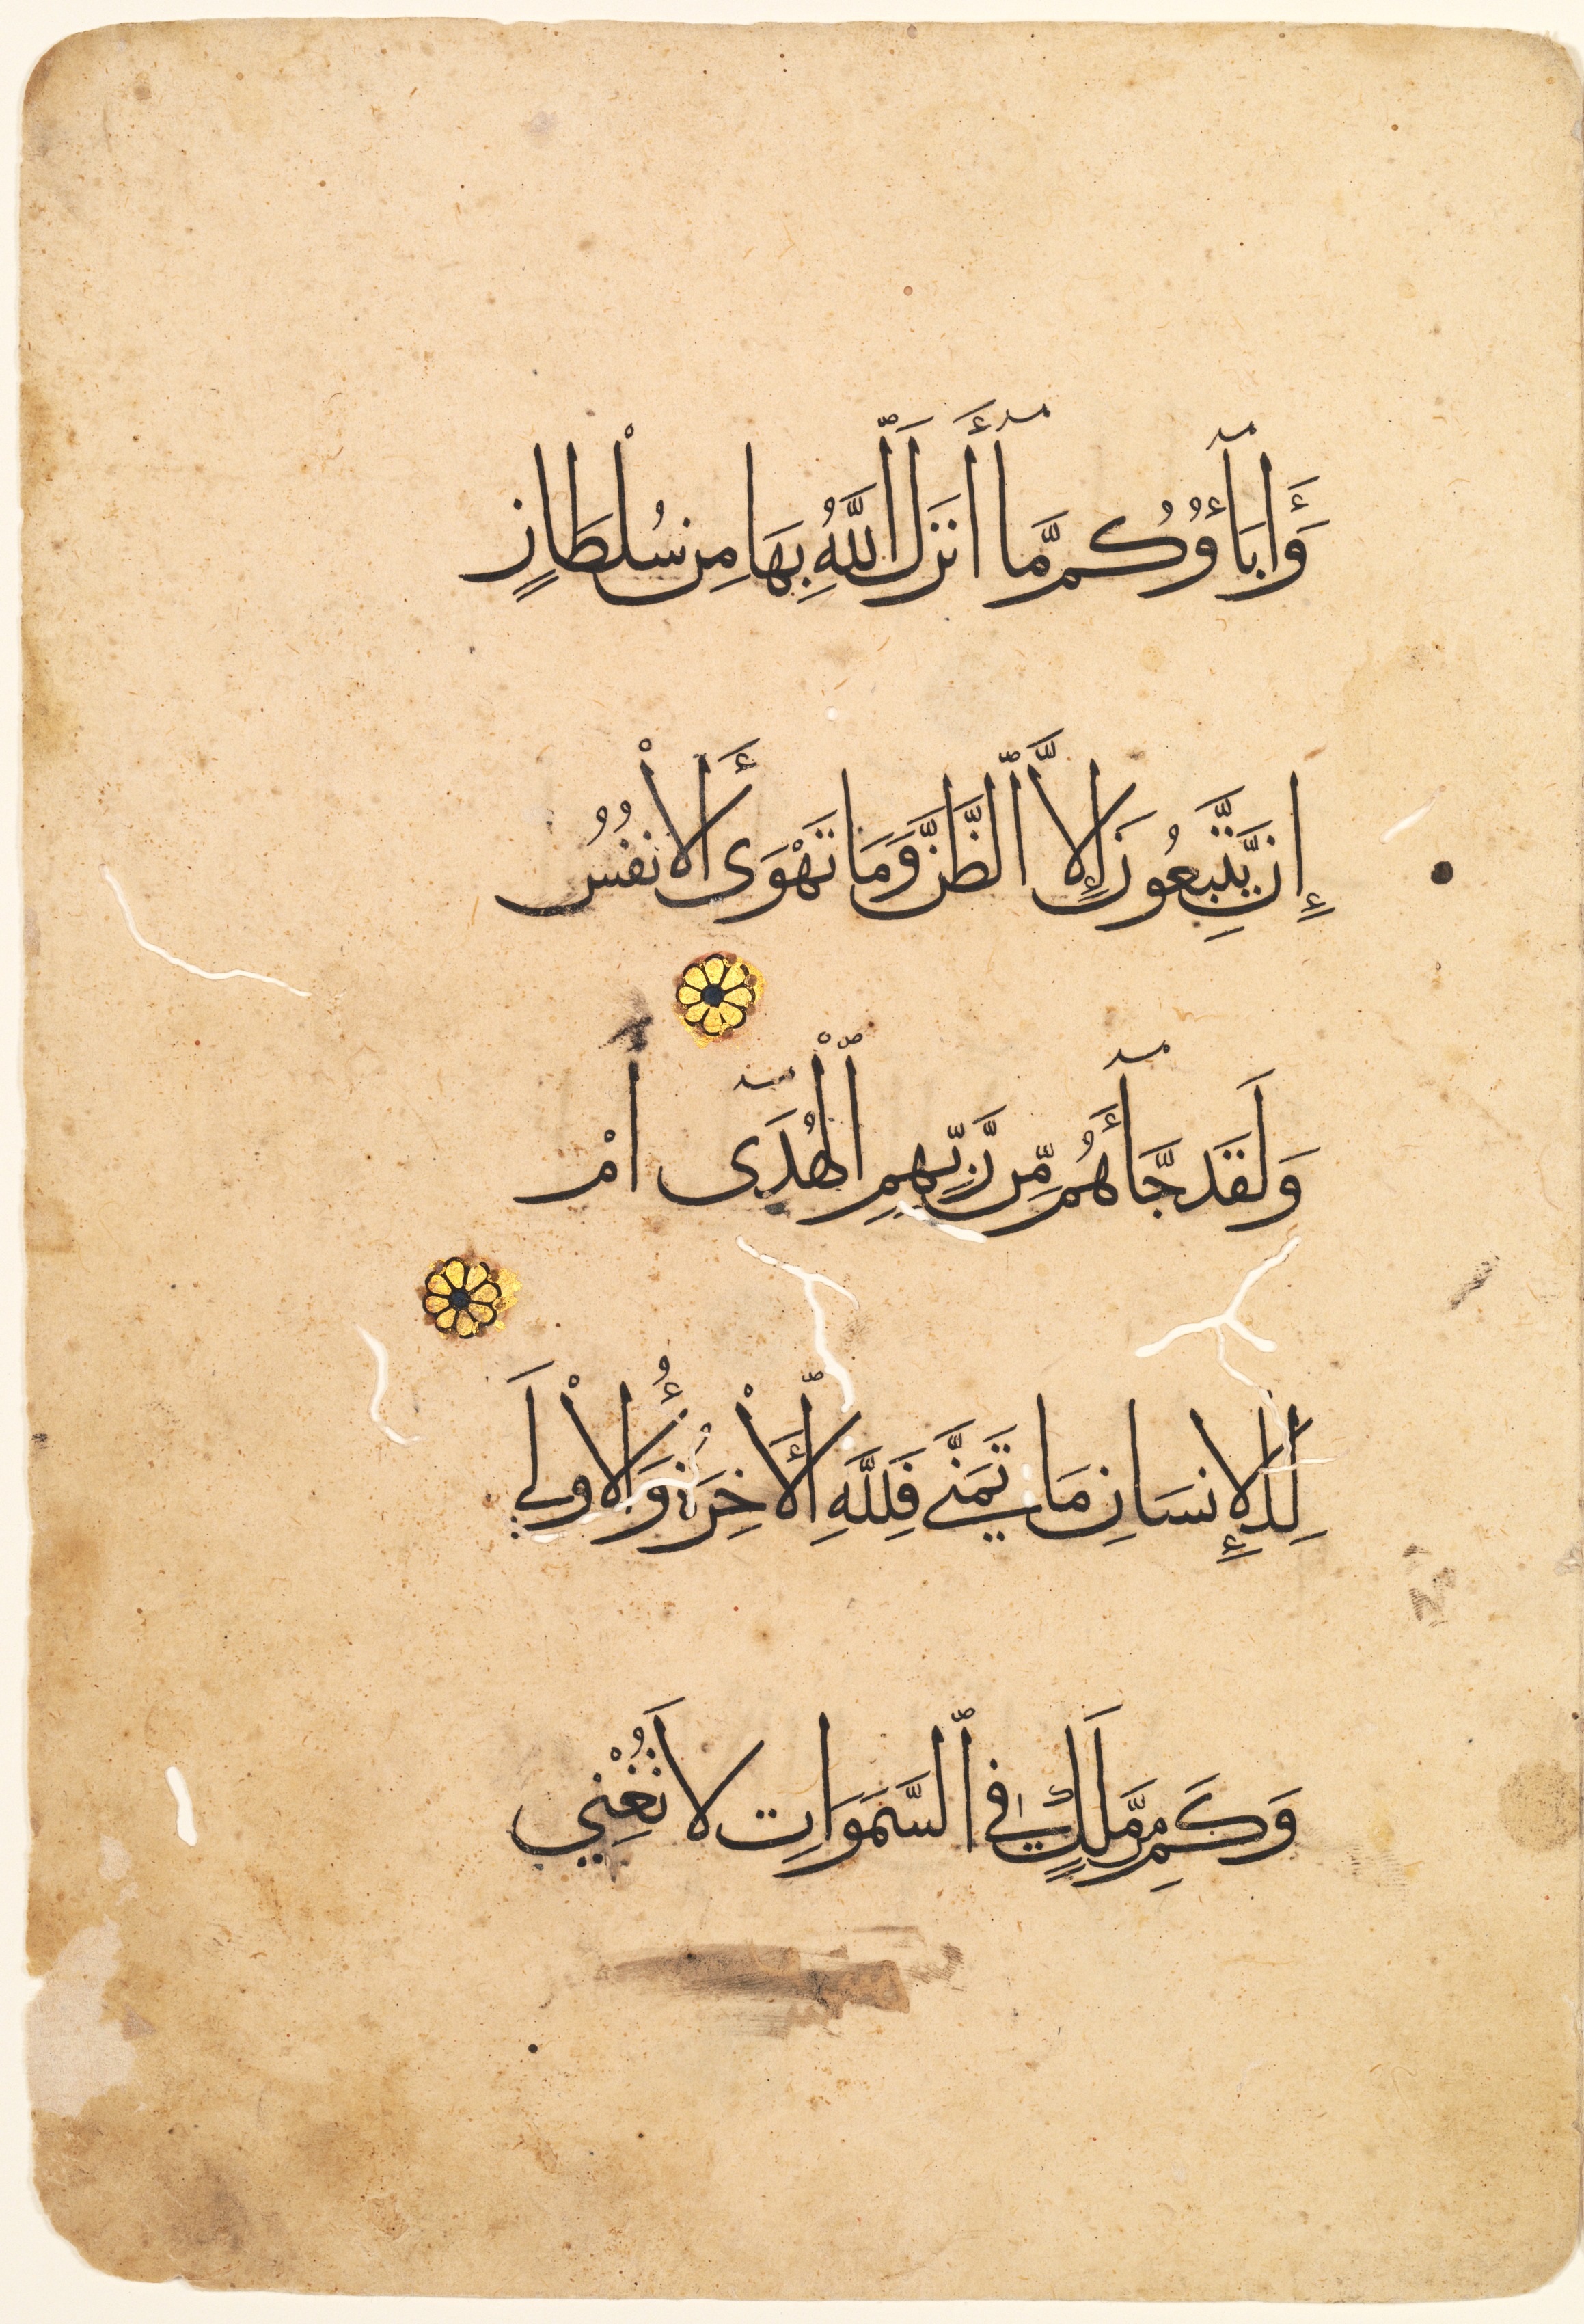 وَءَابَآؤُكُم مَّآ أَنزَلَ ٱللَّهُ بِهَا مِن سُلْطَانٍ
إِن يَّتَّبِعُونَ إِلَّا ٱلظَّنَّ وَمَا تَهْوَى ٱلْأَنفُسُ
وَلَقَد جَّآءَهُم مِّن رَّبِّهِمِ ٱلْهُدَىٓ أَمْ
لِلْإِنسَانِ مَا تَمَنَّى فَلِلَّهِ ٱلْأَخِرَةُ وَٱلْأُولَى
وَكَم مِّن مَّلَكٍ فِي ٱلسَّمَوَاتِ لَا تُغْنِي